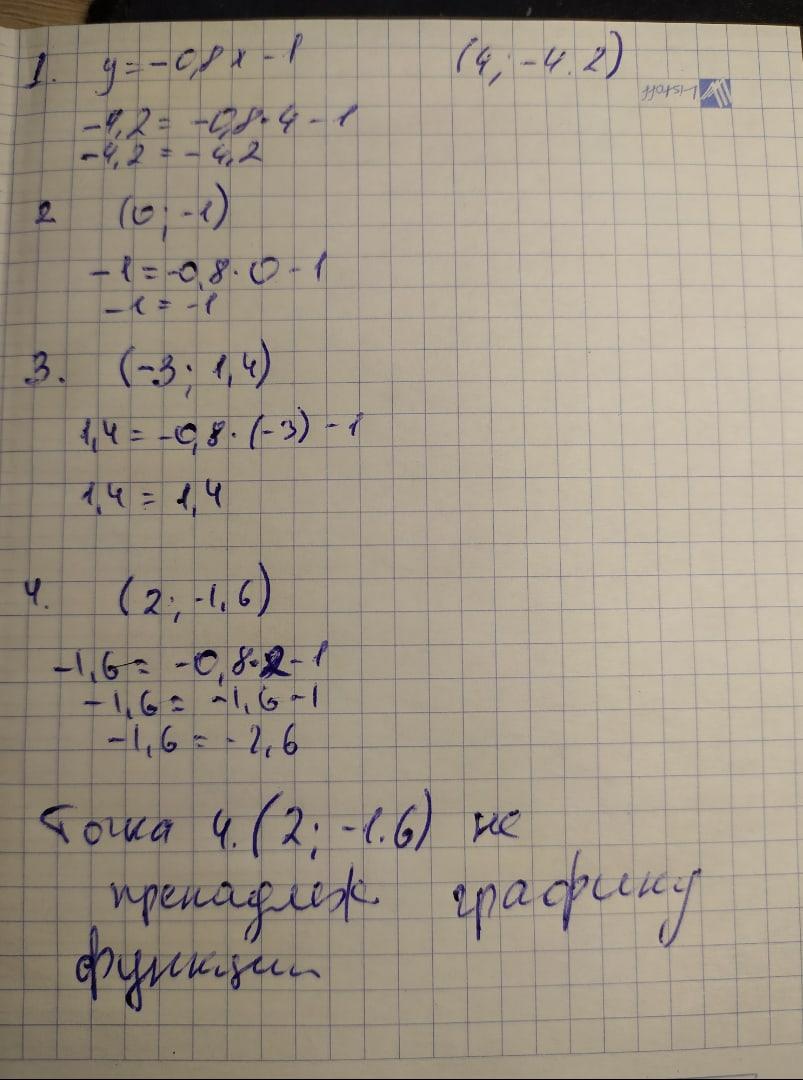 1. y = -0,8x - 1 (4; -4.2)
Listoff
-4,2 = -0,8·4 - 1
-4,2 = -4,2
2 (0; -1)
-1 = -0,8·0 - 1
-1 = -1
3. (-3; 1,4)
1,4 = -0,8·(-3) - 1
1,4 = 1,4
4. (2; -1,6)
-1,6 = -0,8·2 - 1
-1,6 = -1,6 - 1
-1,6 = -2,6
Точка 4. (2; -1.6) не
пренадлеж графику
функции